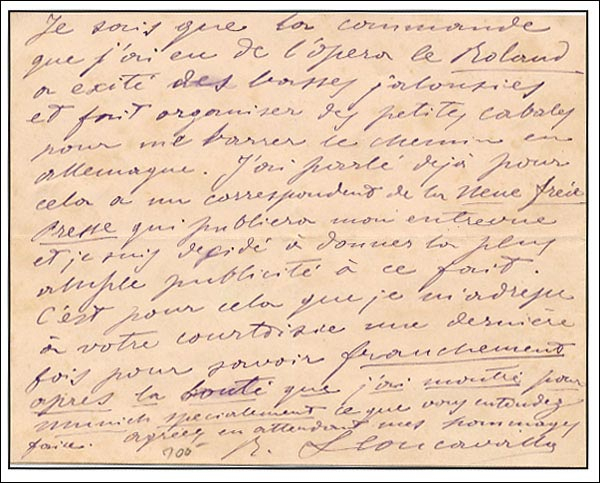 Je sais que la commande
que j'ai eu de l'opera le Roland
a exité des basses jalousies
et fait organiser des petites cabales
pour me barrer le chemin en
allemagne. J'ai parlé dejà pour
cela a un correspondent de la Neue freie
Presse qui publiera mon entrevue
et je suis decidé à donner la plus
ample publicité à ce fait.
C'est pour cela que je m'adresse
à votre courtoisie une dernière
fois pour savoir franchement
après la bonté que j'ai montré pour
Munich specialement ce que vous entendez
faire. agréez en attendant mes hommages
R. Leoncavallo
700